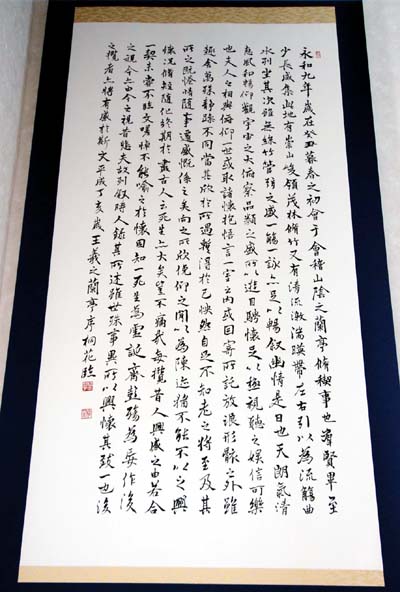 永和九年歲在癸丑暮春之初會于會稽山陰之蘭亭脩禊事也羣賢畢至
少長咸集此地有崇山峻領茂林脩竹又有清流激湍暎帶左右引以為流觴曲
水列坐其次雖無絲竹管弦之盛一觴一詠亦足以暢叙幽情是日也天朗氣清
惠風和暢仰觀宇宙之大俯察品類之盛所以遊目騁懷足以極視聽之娛信可樂
也夫人之相與俯仰一世或取諸懷抱悟言一室之內或因寄所託放浪形骸之外雖
趣舍萬殊靜躁不同當其欣於所遇暫得於己怏然自足不知老之將至及其
所之既惓情隨事遷感慨係之矣向之所欣俛仰之間以為陳迹猶不能不以之興
懷況脩短隨化終期於盡古人云死生亦大矣豈不痛哉每攬昔人興感之由若合
一契未嘗不臨文嗟悼不能喻之於懷固知一死生為虛誕齊彭殤為妄作後
之視今亦由今之視昔悲夫故列叙時人錄其所述雖世殊事異所以興懷其致一也後
之攬者亦將有感於斯文平成丁亥歲王羲之蘭亭序桐花臨